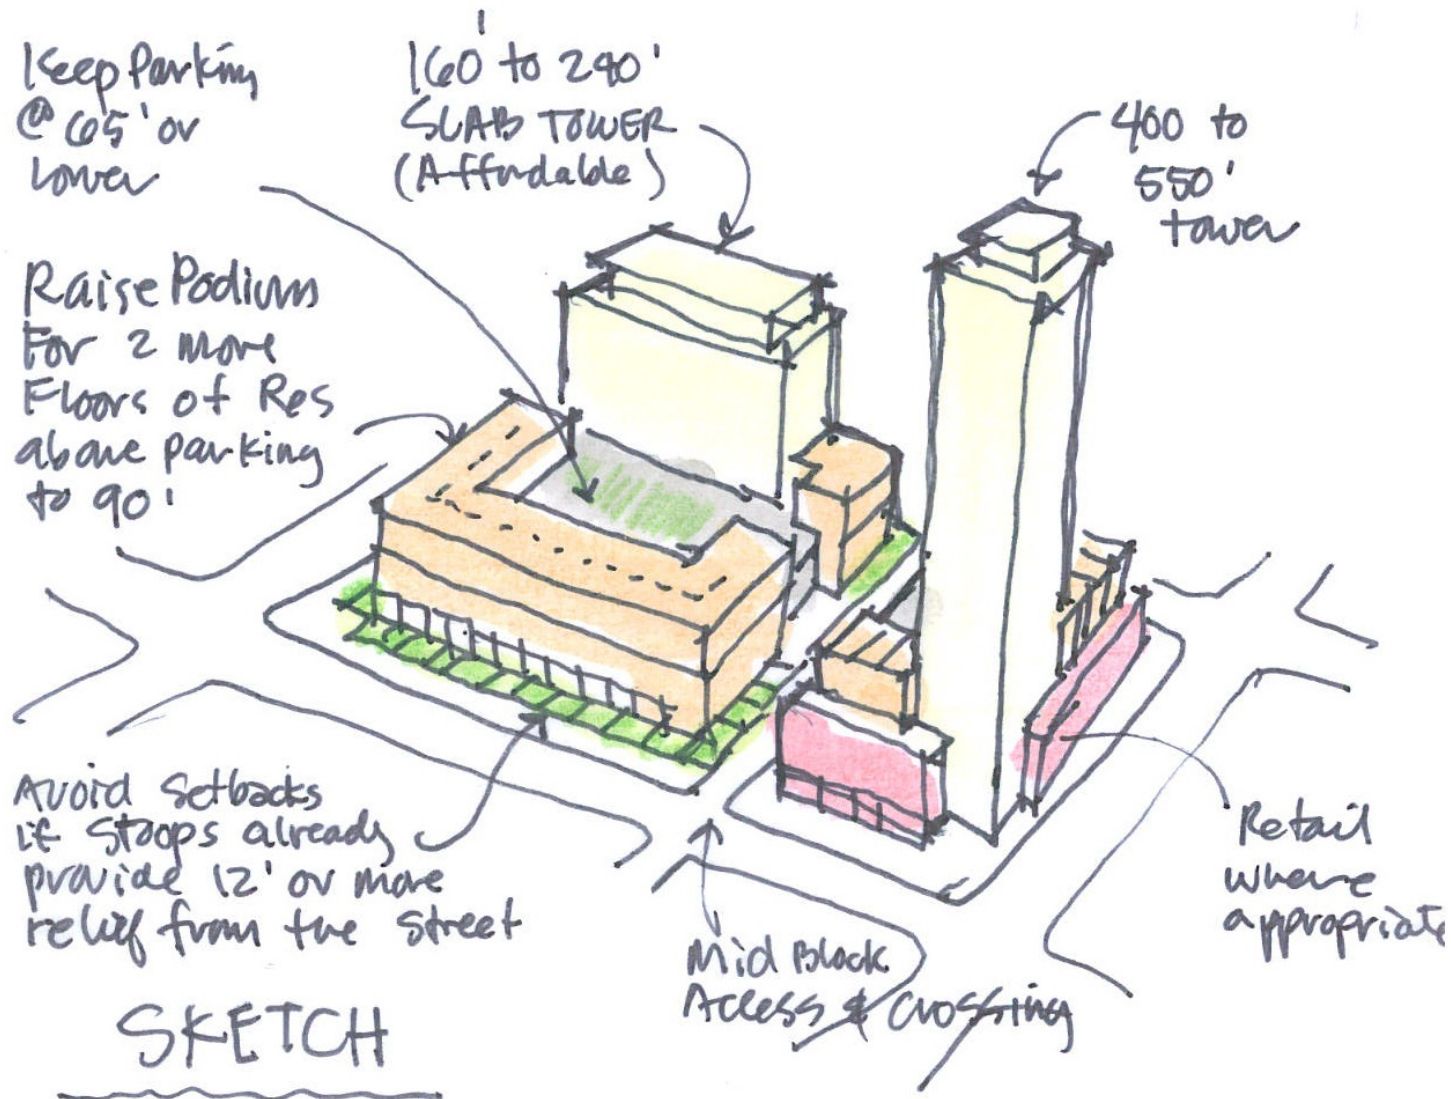 Keep Parking
@ 65' or
Lower
160' to 240'
SLAB TOWER
(Affordable)
400 to
550'
tower
Raise Podium
For 2 more
Floors of Res
above parking
to 90'
Avoid Setbacks
if Stoops already
provide 12' or more
relief from the street
Mid Block
Access & Crossing
Retail
where
appropriate
SKETCH